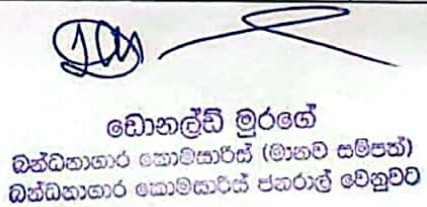 ඩොනල්ඩ් මුරගේ
බන්ධනාගාර කොමසාරිස් (මානව සම්පත්)
බන්ධනාගාර කොමසාරිස් ජනරාල් වෙනුවට